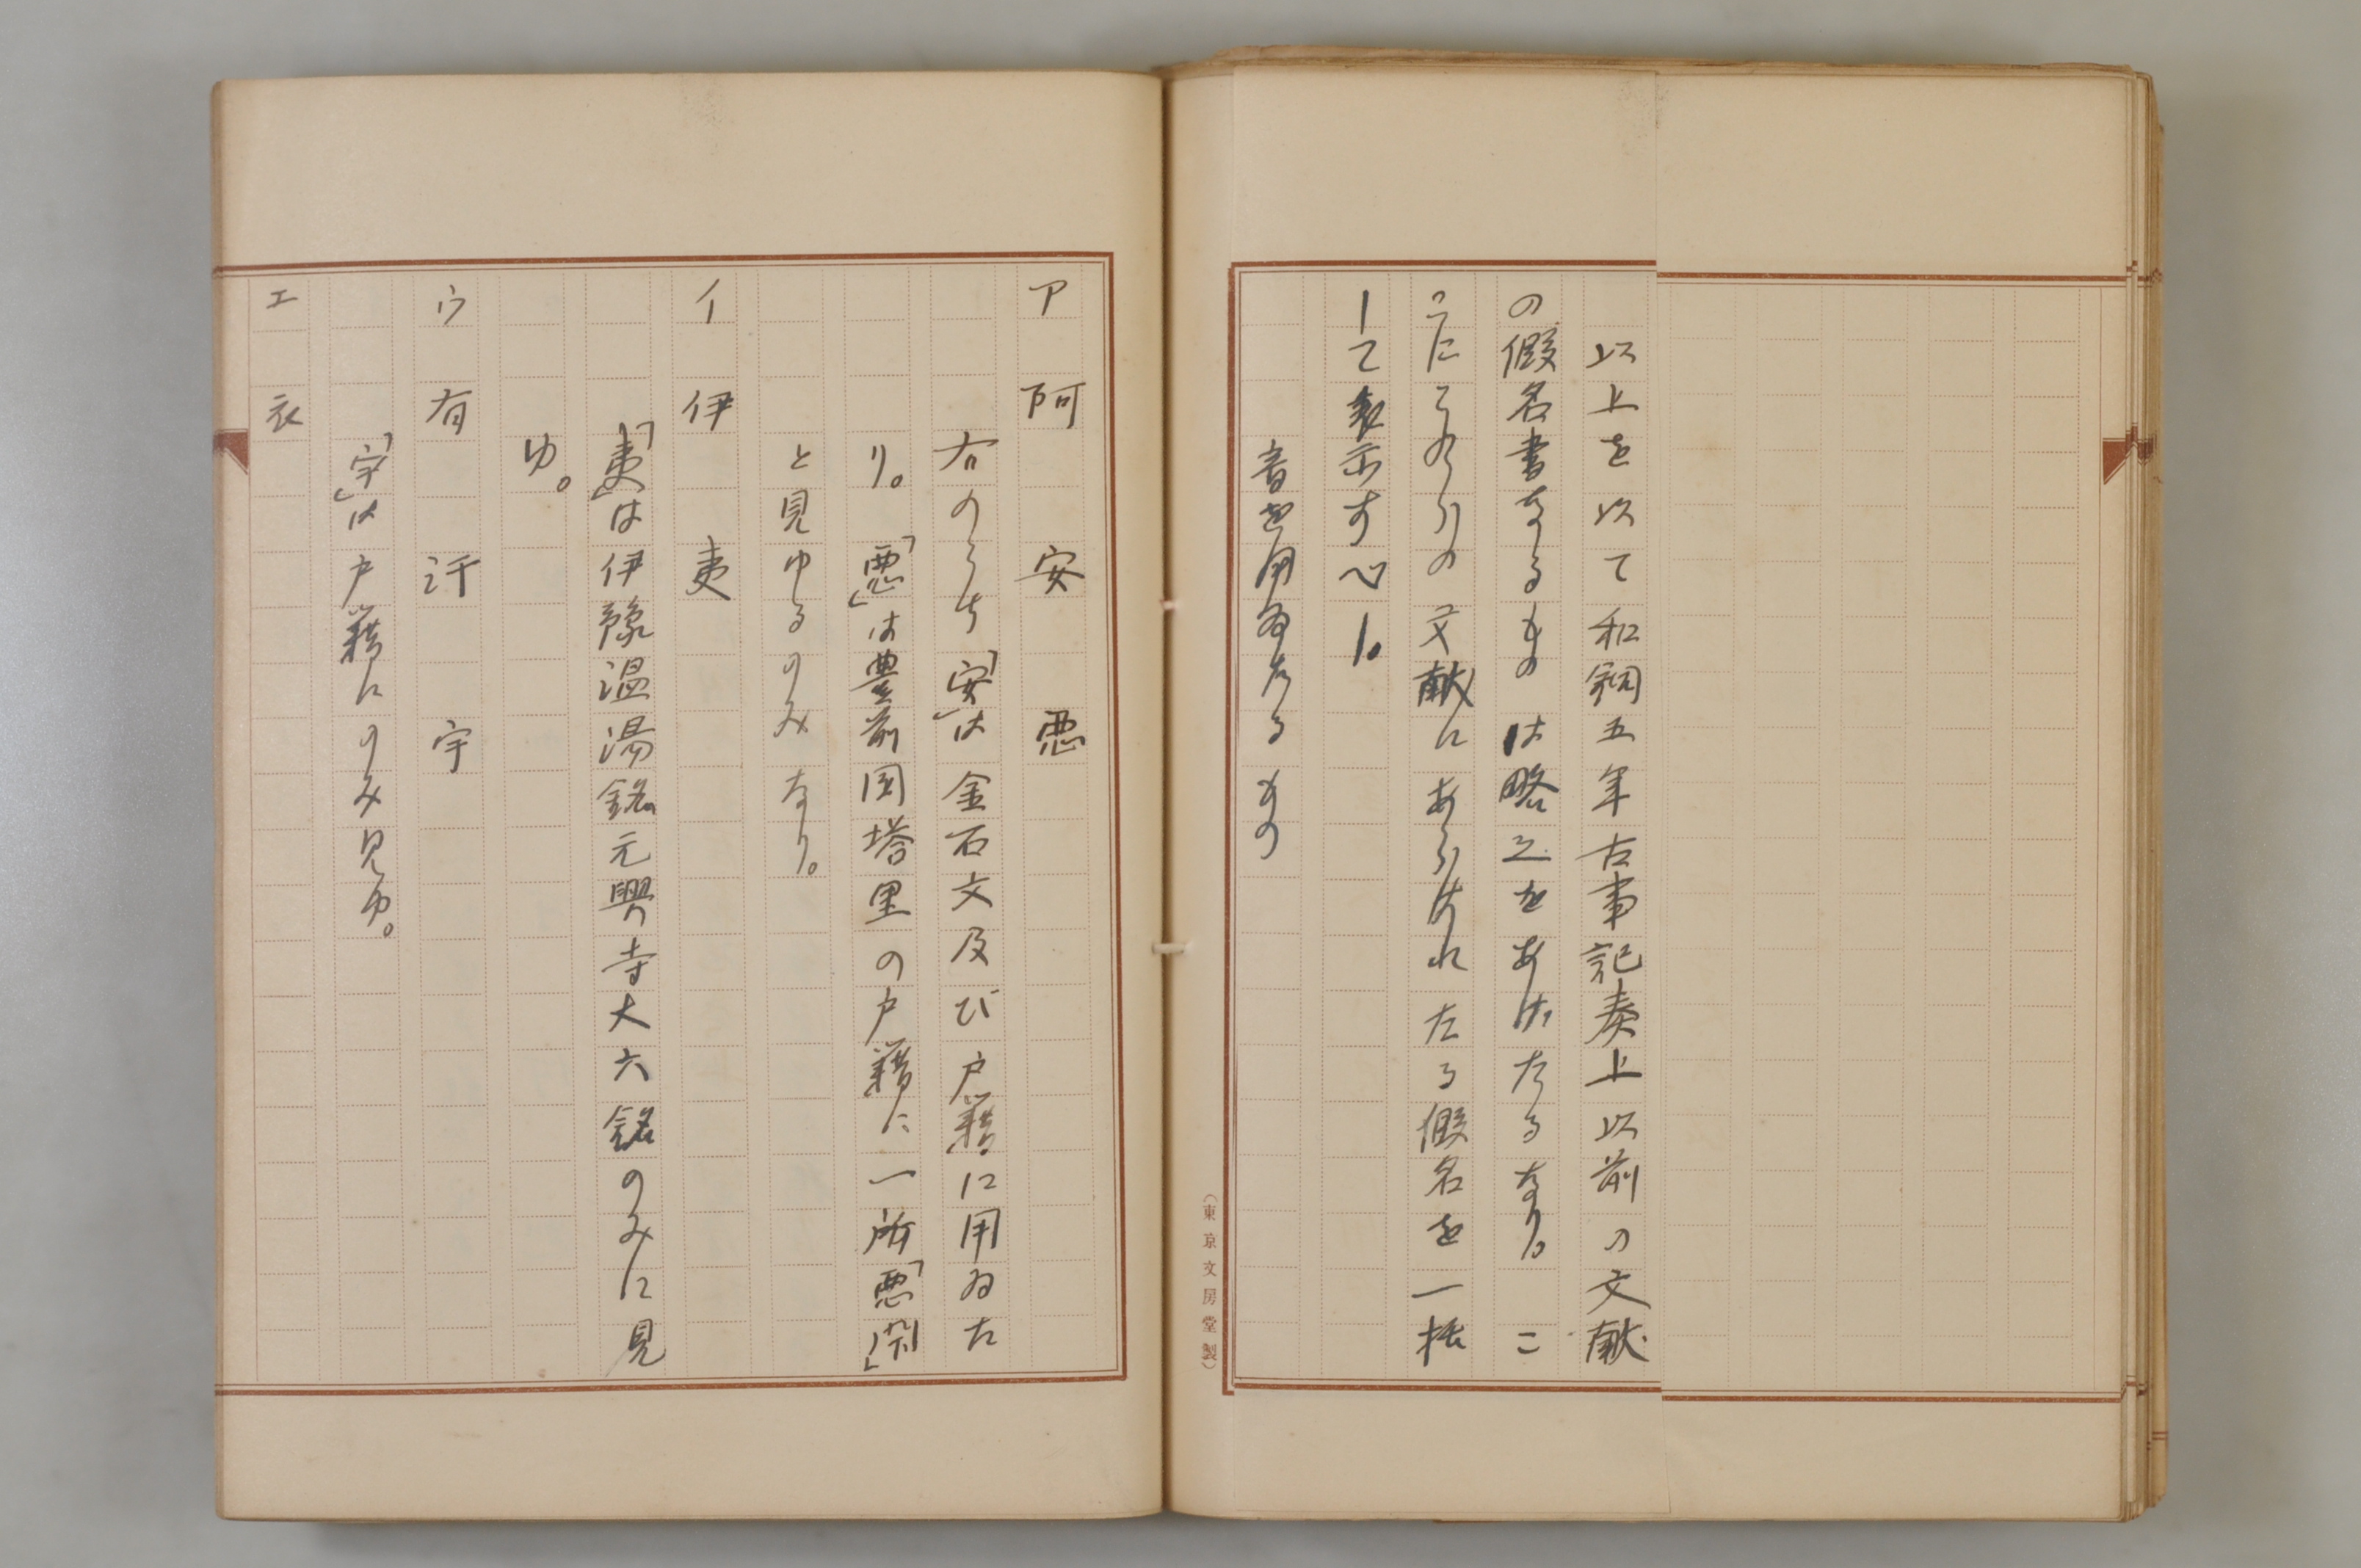 以上を以て和銅五年古事記奏上以前の文献
の假名書なるものは略之をあげたるなり。こ
ゝにこれらの文献にあらはれたる假名を一括
して表示すべし。
音を用ゐたるもの
(東京文房堂製)
ア 阿 安 悪
右のうち「安」は金石文及び戸籍に用ゐた
り。「悪」は豊前国塔里の戸籍に一所「悪閇」
と見ゆるのみなり。
イ 伊 夷
「夷」は伊豫温湯銘元興寺丈六銘のみに見
ゆ。
ウ 有 汙 宇
「宇」は戸籍にのみ見ゆ。
エ 衣